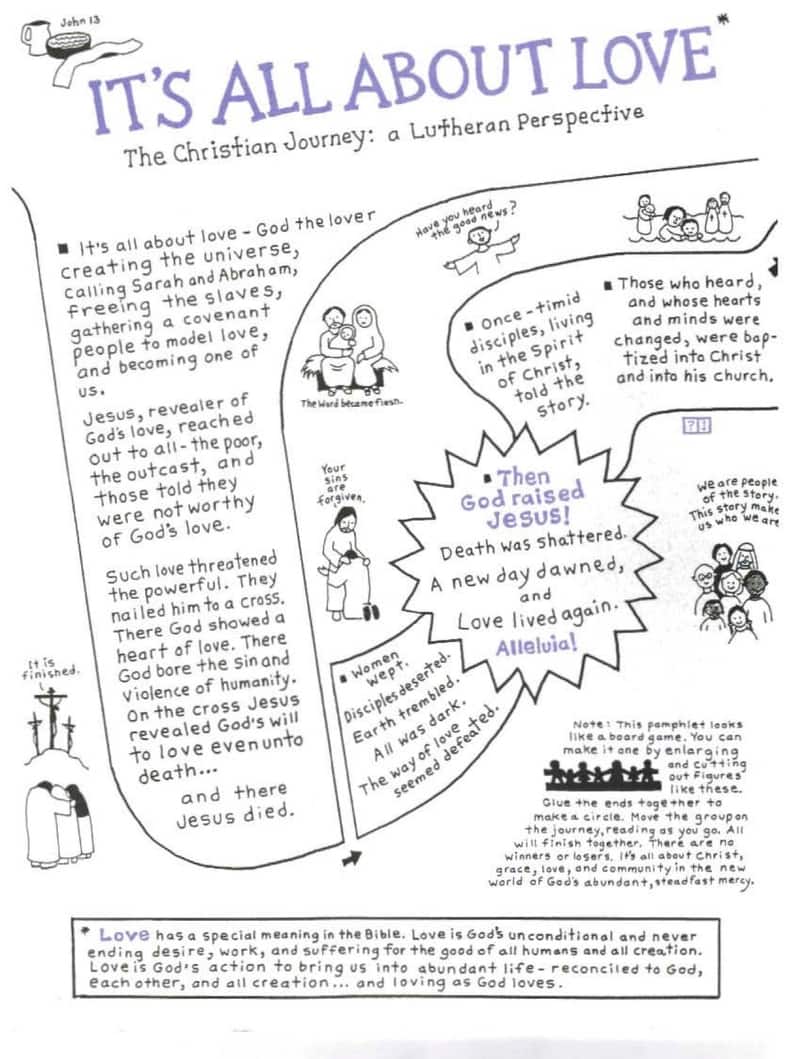 John 13
IT'S ALL ABOUT LOVE*
The Christian Journey: a Lutheran Perspective
■ It's all about love - God the lover
creating the universe,
calling Sarah and Abraham,
freeing the slaves,
gathering a covenant
people to model love,
and becoming one of
us.
Jesus, revealer of
God's love, reached
out to all - the poor,
the outcast, and
those told they
were not worthy
of God's love.
Such love threatened
the powerful. They
nailed him to a cross.
There God showed a
heart of love. There
God bore the sin and
violence of humanity.
On the cross Jesus
revealed God's will
to love even unto
death...
and there
Jesus died.
It is
finished.
The Word became flesh.
Your
sins
are
forgiven.
■ Women
wept.
Disciples deserted.
Earth trembled.
All was dark.
The way of love
seemed defeated.
■ Then
God raised
Jesus!
Death was shattered.
A new day dawned,
and
Love lived again.
Alleluia!
Have you heard
the good news?
■ Once-timid
disciples, living
in the Spirit
of Christ,
told the
story.
■ Those who heard,
and whose hearts
and minds were
changed, were bap-
tized into Christ
and into his church.
We are people
of the story.
This story make
us who we are
Note: This pamphlet looks
like a board game. You can
make it one by enlarging
and cutting
out figures
like these.
Glue the ends together to
make a circle. Move the group on
the journey, reading as you go. All
will finish together. There are no
winners or losers. It's all about Christ,
grace, love, and community in the new
world of God's abundant, steadfast mercy.
* Love has a special meaning in the Bible. Love is God's unconditional and never
ending desire, work, and suffering for the good of all humans and all creation.
Love is God's action to bring us into abundant life - reconciled to God,
each other, and all creation... and loving as God loves.